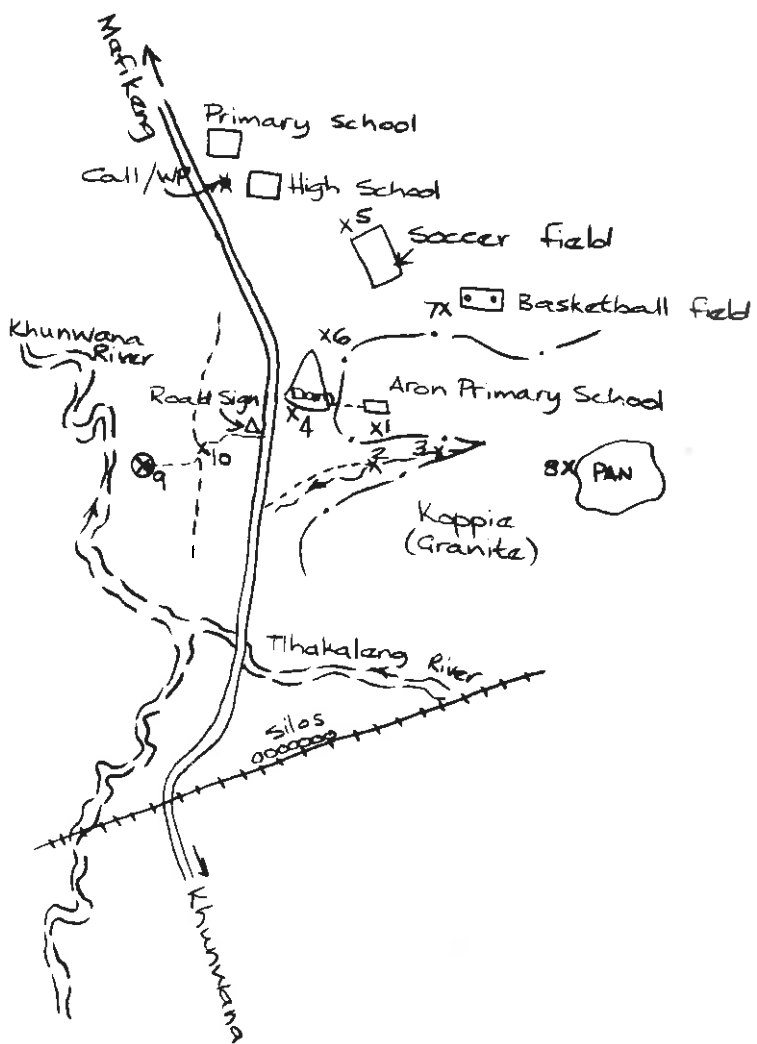 Mafikeng
Primary School
Call/WP
High School
x5
Soccer field
7x
Basketball field
Khunwana
River
x6
Road Sign
Dam
Aron Primary School
x4
x1
x10
2
3x
x9
8x
PAN
Koppie
(Granite)
Tlhakalang River
Silos
Khunwana